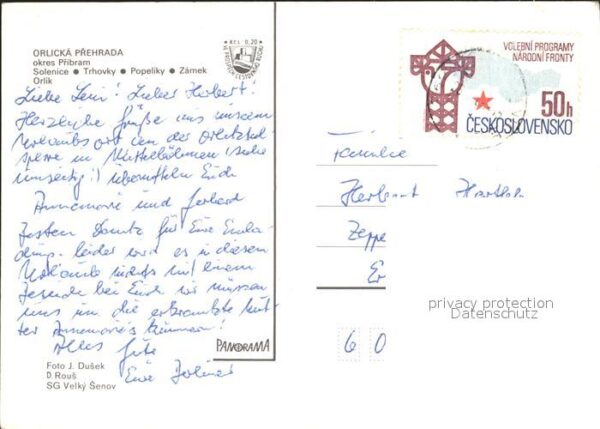 ORLICKÁ PŘEHRADA
okres Příbram
Solenice ● Trhovky ● Popelíky ● Zámek
Orlík
Kčs 0,20
Liebe Leni! Lieber Herbert!
Herzliche Grüße aus unserem
Urlaubsort an der Orlitztal
sperre in Mittelböhmen (siehe
umseitig!) übermitteln Euch
Annemarie und Gerhard
Besten Dank für Eure Einla
dung. Leider wird es in diesem
Urlaub nichts mit einem
Besuch bei Euch. Wir müssen
uns um die erkrankte Mut
ter Annemaries kümmern!
Alles Gute
Eure
PANORAMA
Foto J. Dušek
D. Rouš
SG Velký Šenov
VOLEBNÍ PROGRAMY
NÁRODNÍ FRONTY
50h
ČESKOSLOVENSKO
Familie
Herbert
Zeppe
Er
privacy protection
Datenschutz
6 0